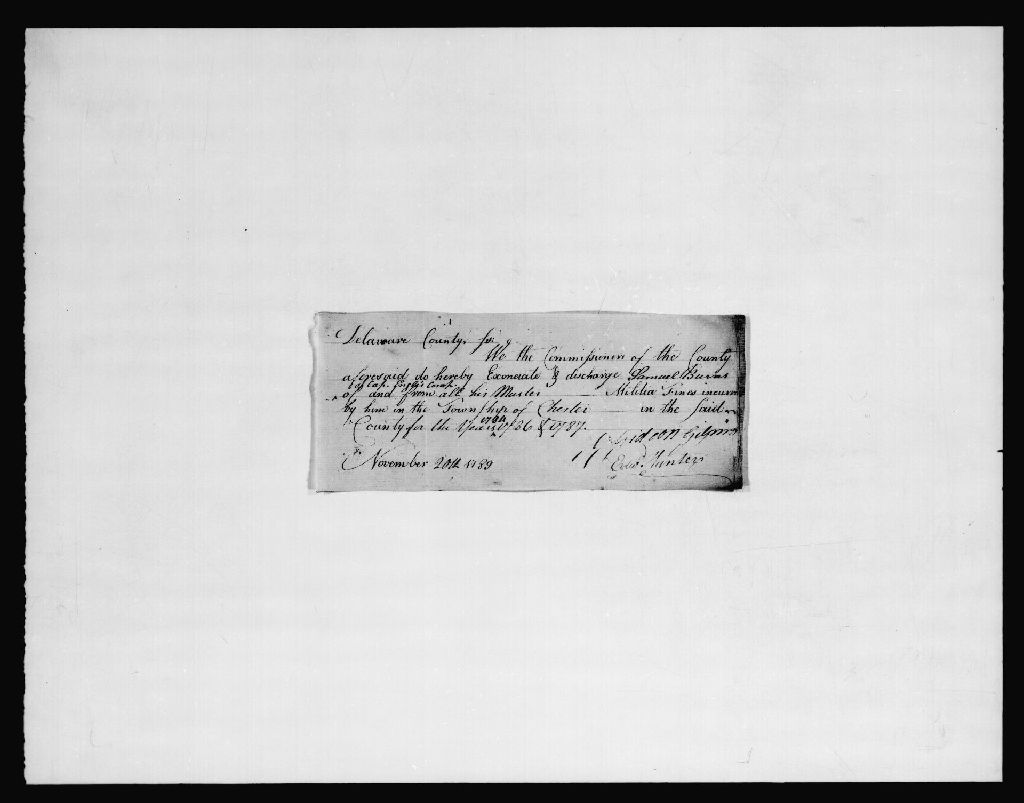 Delaware County, ss.
We the Commissioners of the County
aforesaid do hereby Exonerate & discharge Samuel Burns
of Cap.
of and from all his Muster Militia Fines incurred
by him in the Township of Chester in the said
County for the Years 1786 & 1787
Gideon Gilpin
November 20th 1789